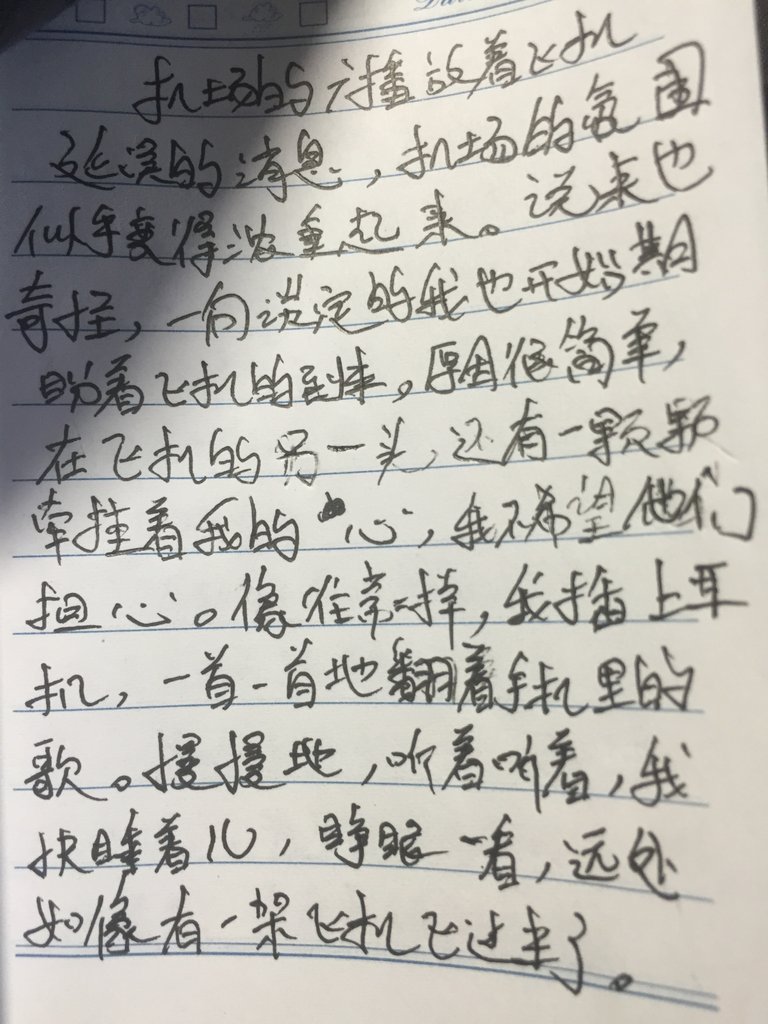 机场的广播放着飞机
延误的消息，机场的氛围
似乎变得浓重起来。说来也
奇怪，一向淡定的我也开始期
盼着飞机的到来。原因很简单，
在飞机的另一头，还有一颗颗
牵挂着我的心，我不希望他们
担心。像往常一样，我插上耳
机，一首一首地翻着手机里的
歌。慢慢地，听着听着，我
快睡着儿，睁眼一看，远处
好像有一架飞机飞过来了。